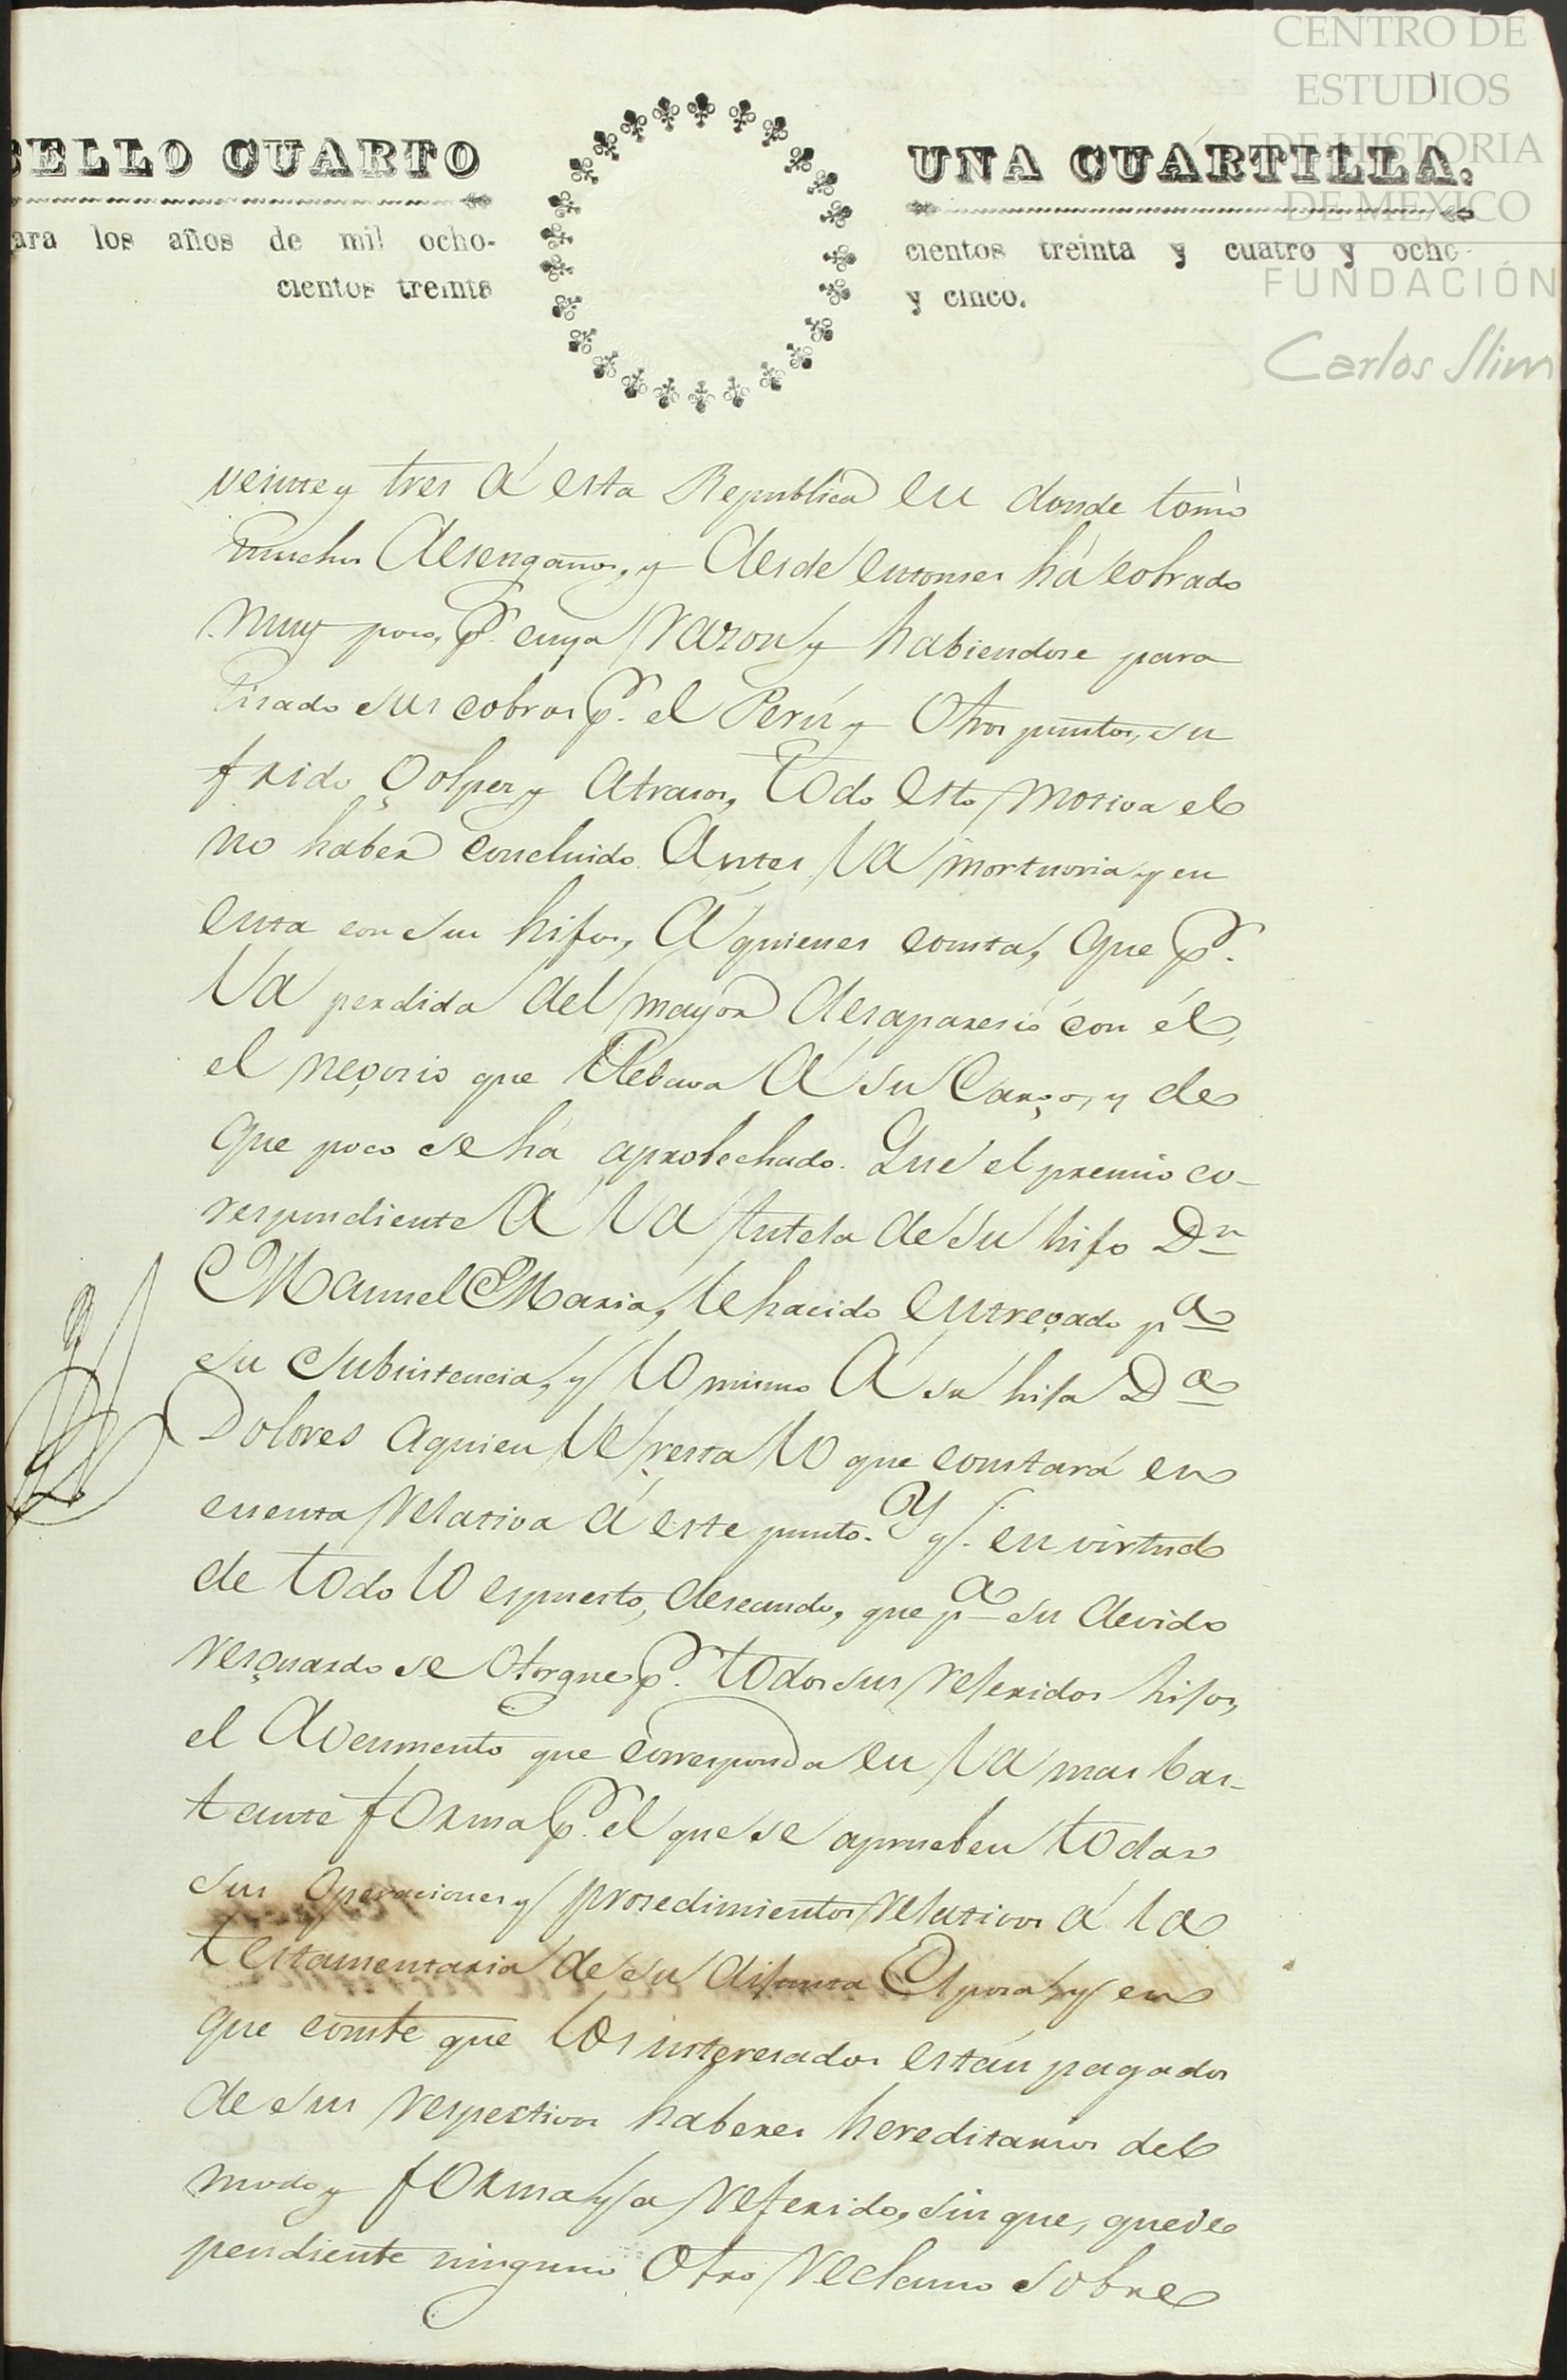 CENTRO DE
ESTUDIOS
DE HISTORIA
DE MEXICO
FUNDACIÓN
Carlos Slim
SELLO CUARTO UNA CUARTILLA.
ara los años de mil ocho- cientos treinta y cuatro y ocho-
cientos treinta y cinco.
veinte y tres á esta Republica en donde tomó
muchos desengaños, y desde entonses há cobrado
muy poco, p.r cuya razon y habiendose para
lisado sus cobros p.r el Perú y otros puntos, su
frido golpes y atrasos, todo esto motiva el
no haber concluido antes la mortuoria y cu
enta con sus hijos, á quienes consta, que p.r
la perdida del mayor desaparesió con él,
el negocio que llebava á su cargo, y de
que poco se há aprobechado. Que el premio co-
respondiente á la tutela de su hijo Dn
Manuel Maria, le ha cido entregado pa
su subsistencia, y lo mismo á su hija Da
Dolores aquien le resta lo que constará en
cuenta relativa á este punto. Y q.e en virtud
de todo lo espuesto, deseando, que pa su devido
resguardo se otorgue p.r todos sus referidos hijos,
el documento que corresponda en la mas bas-
tante forma p.r el que se aprueben todas
sus operaciones y prosedimientos relativos á la
testamentaria de su difunta Esposa, y en
que conste que los interesados están pagados
de sus respectivos haberes hereditarios del
modo y forma ya referido, sin que, quede
pendiente ninguno otro reclamo sobre